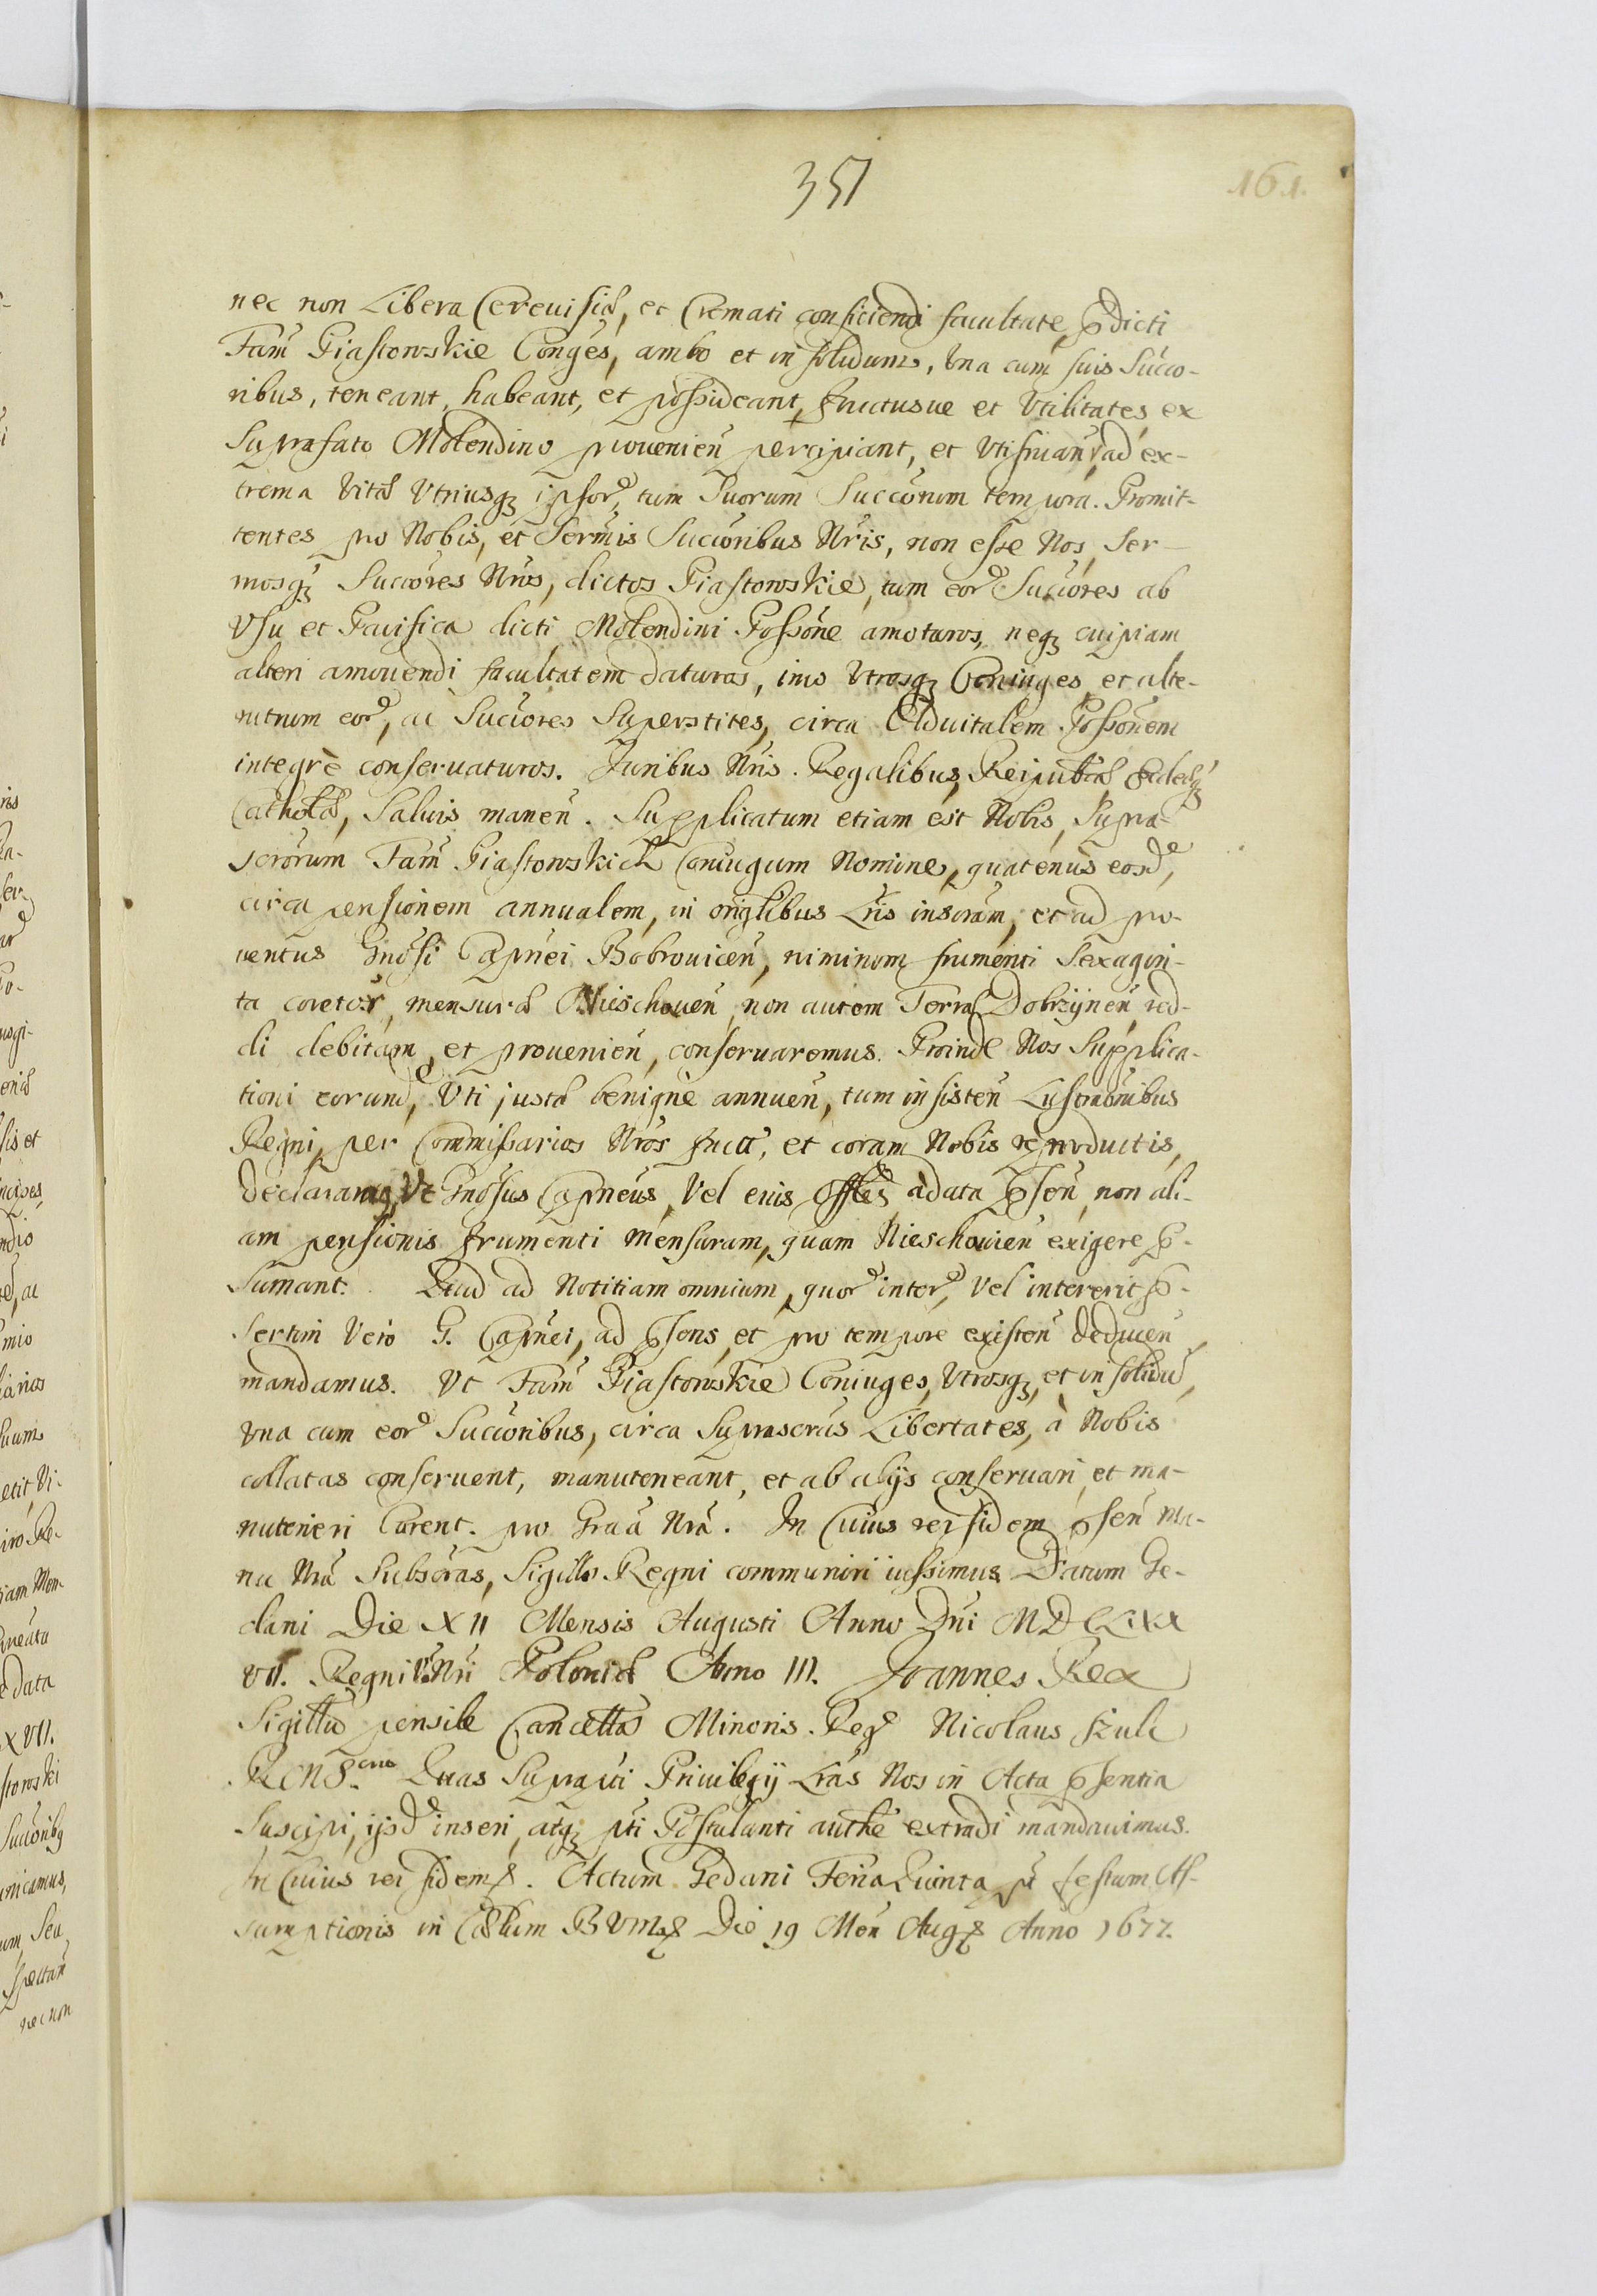 351
161.
nec non Libera Cerevisiæ, et Cremati conficiendi facultate, pdicti
Fam̃ Piastowskie Conges, ambo et in solidum, vna cum suis Succo-
ribus, teneant, habeant, et possideant, fructusue et Vtilitates, ex
Suprafato Molendino prouenień percipiant, et Vtifruań, ad ex-
trema Vitæ Vtriusq ipsor, tum Suorum Succorum tempora. Promit-
tentes pro Nobis, et Sermis Succoribus Nris, non esse Nos, Ser-
mosq Succores Nros, dictos Piastowskie, tum eor Succores ab
Vsu et Pacifica dicti Molendini Possone amoturos, neq cuipiam
alteri amouendi facultatem daturos, imo Vtrosq Coniuges, et alte-
rutrum eor, ac Succores Superstites, circa Aduitalem Possonem
integrè conseruaturos. Juribus Nris Regalibus, Reipublicæ Ecclæq
Catholæ, Saluis maneń. Supplicatum etiam est Nobis, Supra-
scrorum Fam̃ Piastowskich Coniugum Nomine, quatenus eosd,
circa pensionem annualem, in origlibus Lris inscram, et ad pro-
uentus Gnosi Capnei Bobrouiceń, niminum frumenti Sexagin-
ta coretor, mensuræ Nieschoueń, non autem Terræ Dobrzyneń, red-
di debitam, et prouenień, conseruaremus. Proinde Nos Supplica-
tioni eorund, Vti justæ benignè annueń, tum insisteń Lustraonibus
Regni, per Commissarios Nros fact, et coram Nobis reproductis,
declaramus, Vt Gnosus Capneus, Vel eius Offles, à data pseń, non ali-
am pensionis frumenti mensuram, quam Nieschouień exigere p-
sumant. Quod ad Notitiam omnium, quor inter, Vel intererit, p-
sertim Vero G. Capnei, ad psens, et pro tempore existeń deduceń
mandamus. Vt Fam̃ Piastowskie Coniuges, Vtrosq, et in solidu,
vna cum eor Succoribus, circa Suprascras Libertates, à Nobis
collatas conseruent, manuteneant, et ab alijs conseruari, et ma-
nuteneri Curent. pro Graã Nrã. In Cuius rei fidem pseń ma-
nu Nrã Subscras, Sigillo Regni communiri iussimus. Datum Ge-
dani Die XII Mensis Augusti Anno Dni MDCLXX
VII. Regni V. Nri Poloniæ Anno III. Joannes Rex
Sigillu pensile Cancellæ Minoris Reg Nicolaus Szulc
Quas Suprapti Priuilegij Lras Nos in Acta psentia
Suscipi, ijsd inseri, atq pti Postulanti authe extradi mandauimus.
In Cuius rei fidem. Actum Gedani Feria Quinta pt festum As-
sumptionis in Cælum BVM Die 19 Meń Aug Anno 1677.